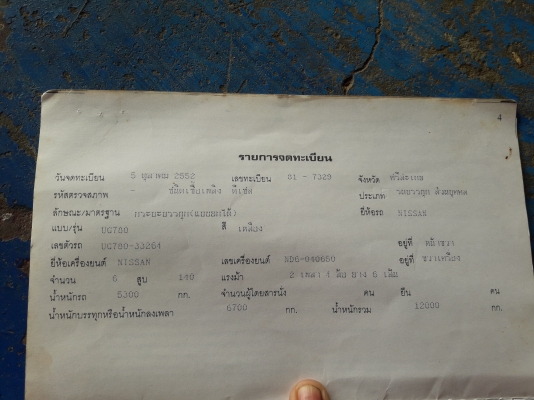 4
รายการจดทะเบียน
วันจดทะเบียน 5 ตุลาคม 2552 เลขทะเบียน 81 - 7329 จังหวัด ศรีสะเกษ
รหัสตรวจสภาพ - ชนิดเชื้อเพลิง ดีเซล ประเภท รถบรรทุก ส่วนบุคคล
ลักษณะ/มาตรฐาน กระบะบรรทุก(แบบยกได้) ยี่ห้อรถ NISSAN
แบบ/รุ่น UG780 สี เหลือง
เลขตัวรถ UG780-33264 อยู่ที่ หน้าขวา
ยี่ห้อเครื่องยนต์ NISSAN เลขเครื่องยนต์ ND6-040650 อยู่ที่ ขวาเครื่อง
จำนวน 6 สูบ 140 แรงม้า 2 เพลา 4 ล้อ ยาง 6 เส้น
น้ำหนักรถ 5300 กก. จำนวนผู้โดยสารนั่ง คน ยืน คน
น้ำหนักบรรทุกหรือน้ำหนักลงเพลา 6700 กก. น้ำหนักรวม 12000 กก.